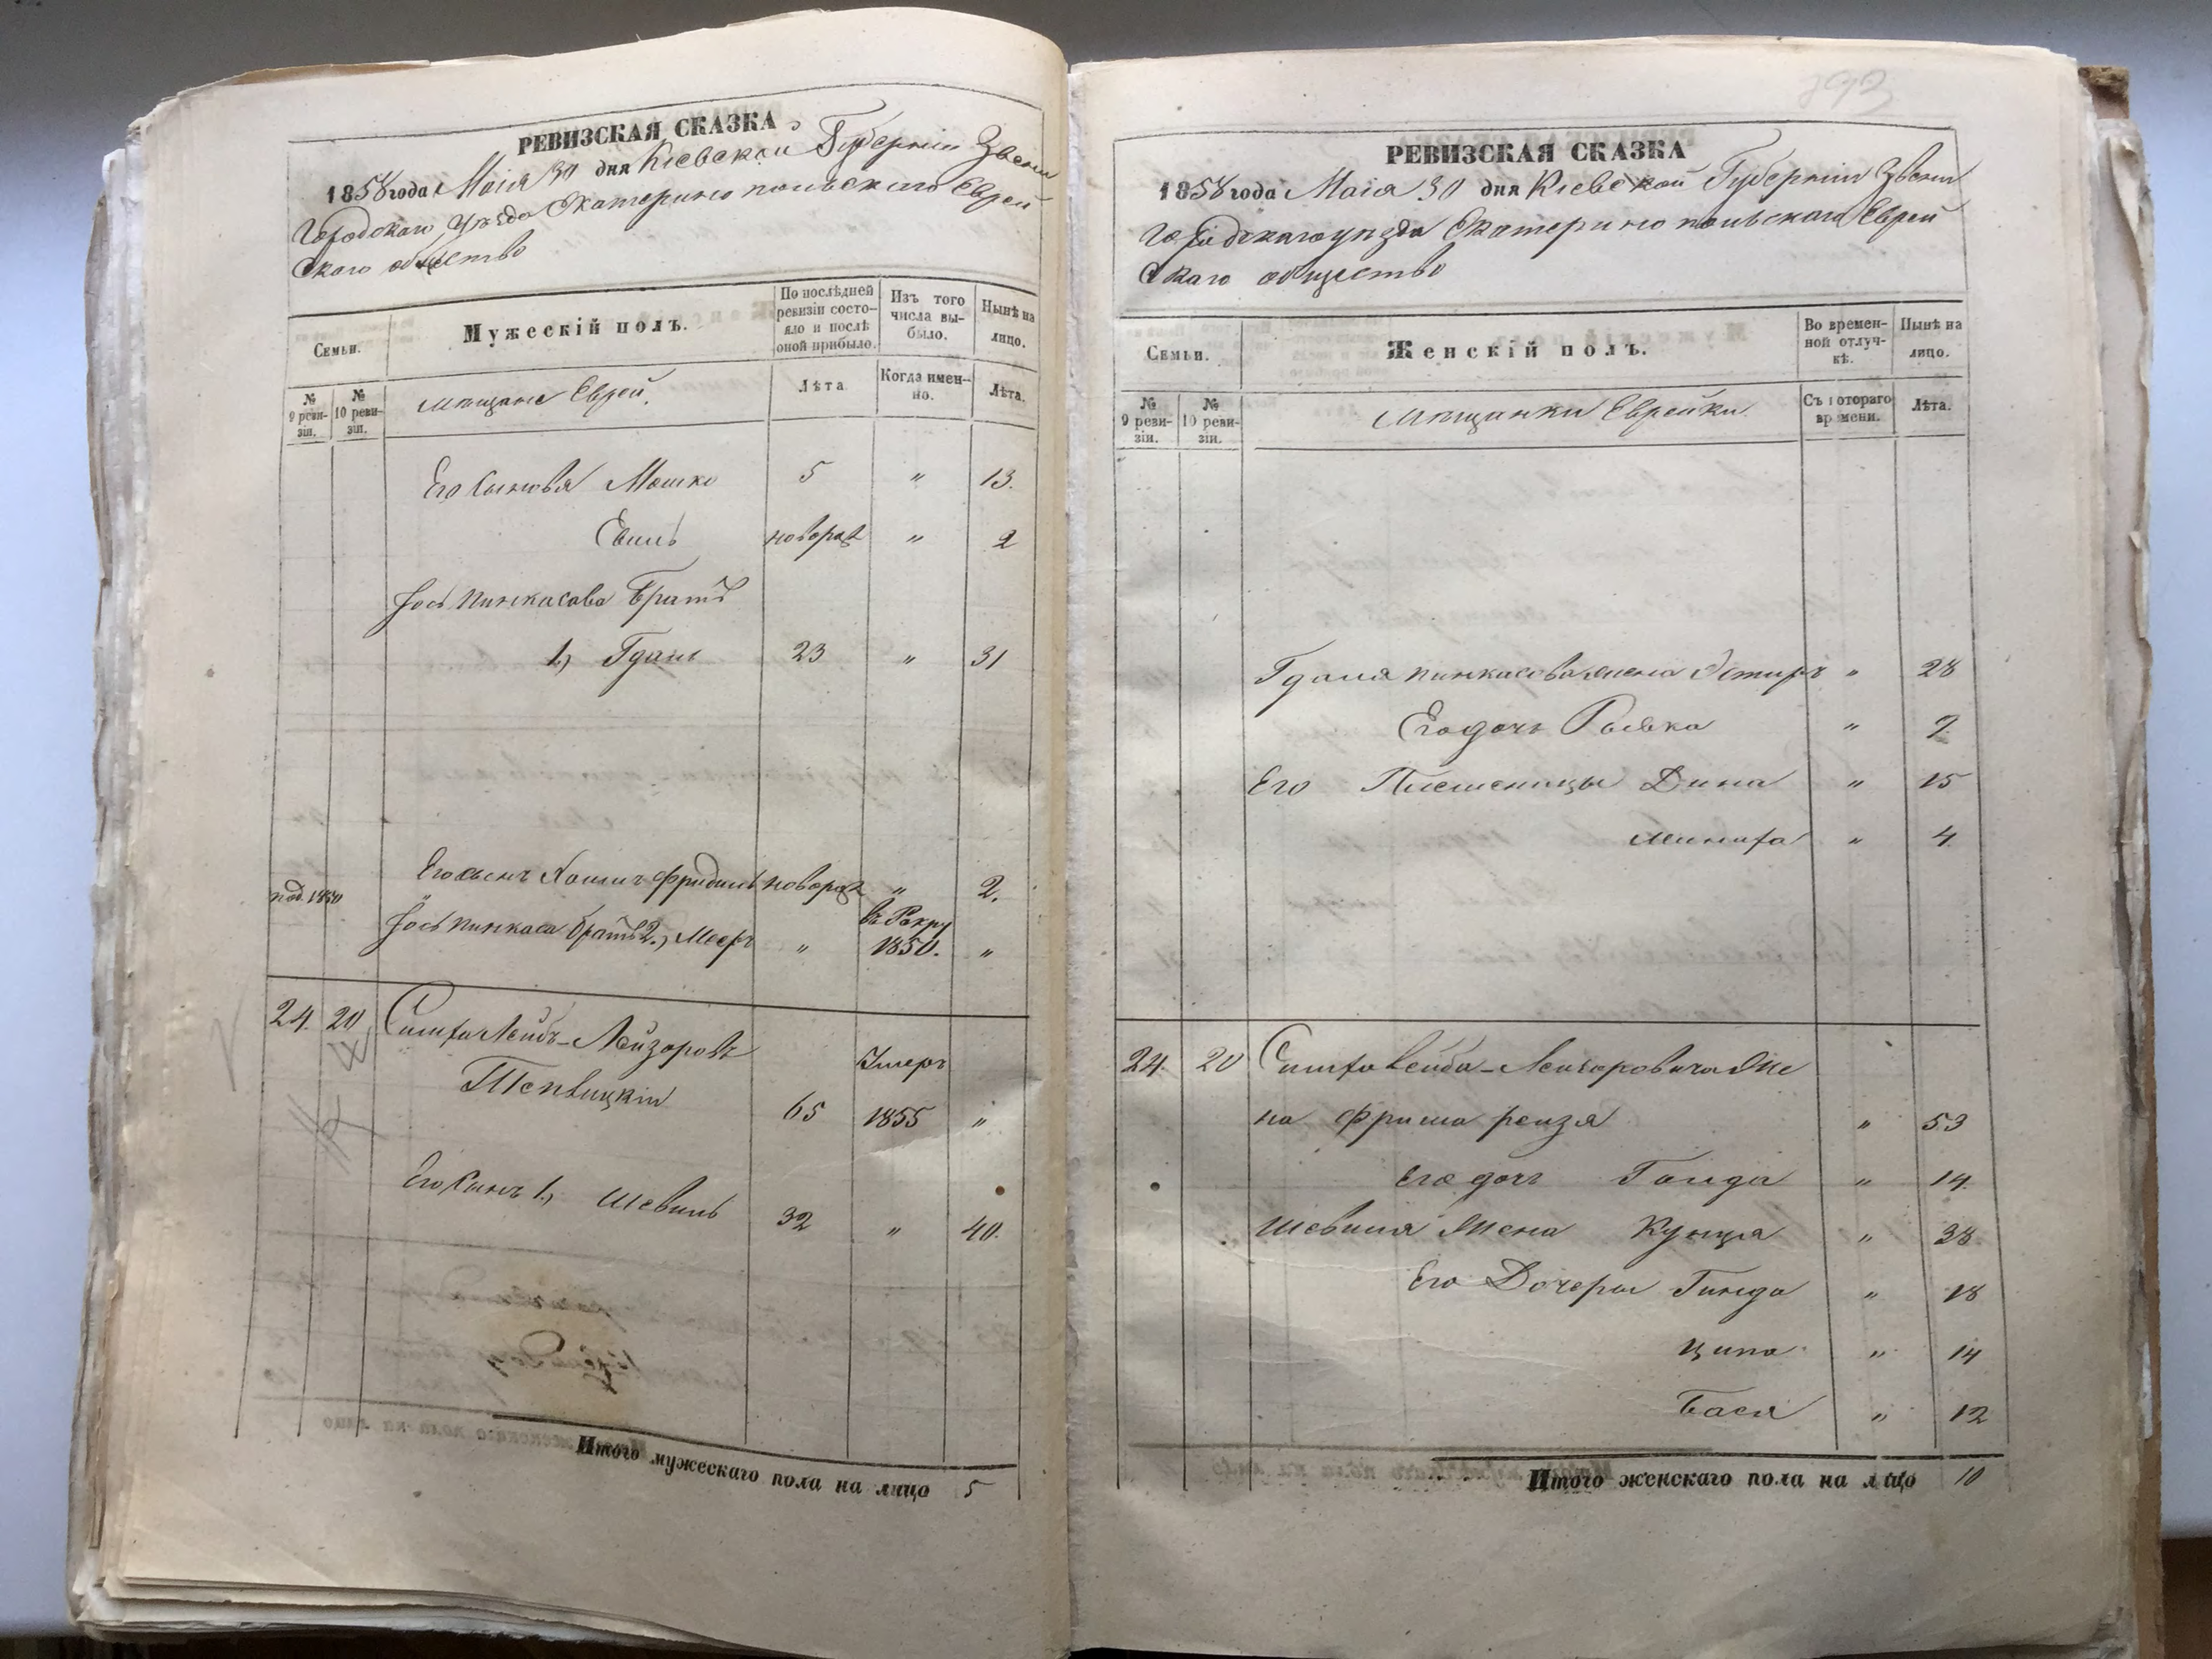 РЕВИЗСКАЯ СКАЗКА
1858 года Маія 30 дня Кіевской Губерніи Звени
Городскаго Уѣзда Екатеринопольскаго Еврей
скаго общество
Семьи.
Мужескій полъ.
По послѣдней ревизіи состояло и послѣ оной прибыло.
Изъ того числа выбыло.
Нынѣ на лицо.
№ 9 ревизіи.
№ 10 ревизіи.
мѣщане Еврей.
Лѣта
Когда именно.
Лѣта.
Его сыновья Мошко 5 " 13.
Евиль новорож " 2
Іось Пинкасова Братъ
1.) Гдаль 23 " 31
Его сынъ Хаимъ Фридель новорож " 2.
Іось Пинкаса братъ 2.) Мееръ " въ Рекру 1850. "
24. 20 Лейбъ-Лейзоровъ
65 Умеръ 1855 "
Его Сынъ 1.) Шевель 32 " 40.
Итого мужескаго пола на лицо 5
РЕВИЗСКАЯ СКАЗКА
1858 года Маія 30 дня Кіевской Губерніи Звени
Городскаго уѣзда Екатеринопольскаго Еврей
скаго общество
Семьи.
Женскій полъ.
Во временной отлучкѣ.
Нынѣ на лицо.
№ 9 ревизіи.
№ 10 ревизіи.
Мѣщанки Еврейки
Съ котораго времени.
Лѣта.
Гдаля Пинкасова жена Эстиръ " 28
Его дочь Рывка " 9.
Его Племеницы Дина " 15
" 4
24. 20 Лейба-Лейзоровича Же
на Фрима рейзя " 53
Его дочь " 14.
Шевеля Жена Кунця " 38
Его Дочеры Гинда " 18
Ципа " 14
Бася " 12
Итого женскаго пола на лицо 10